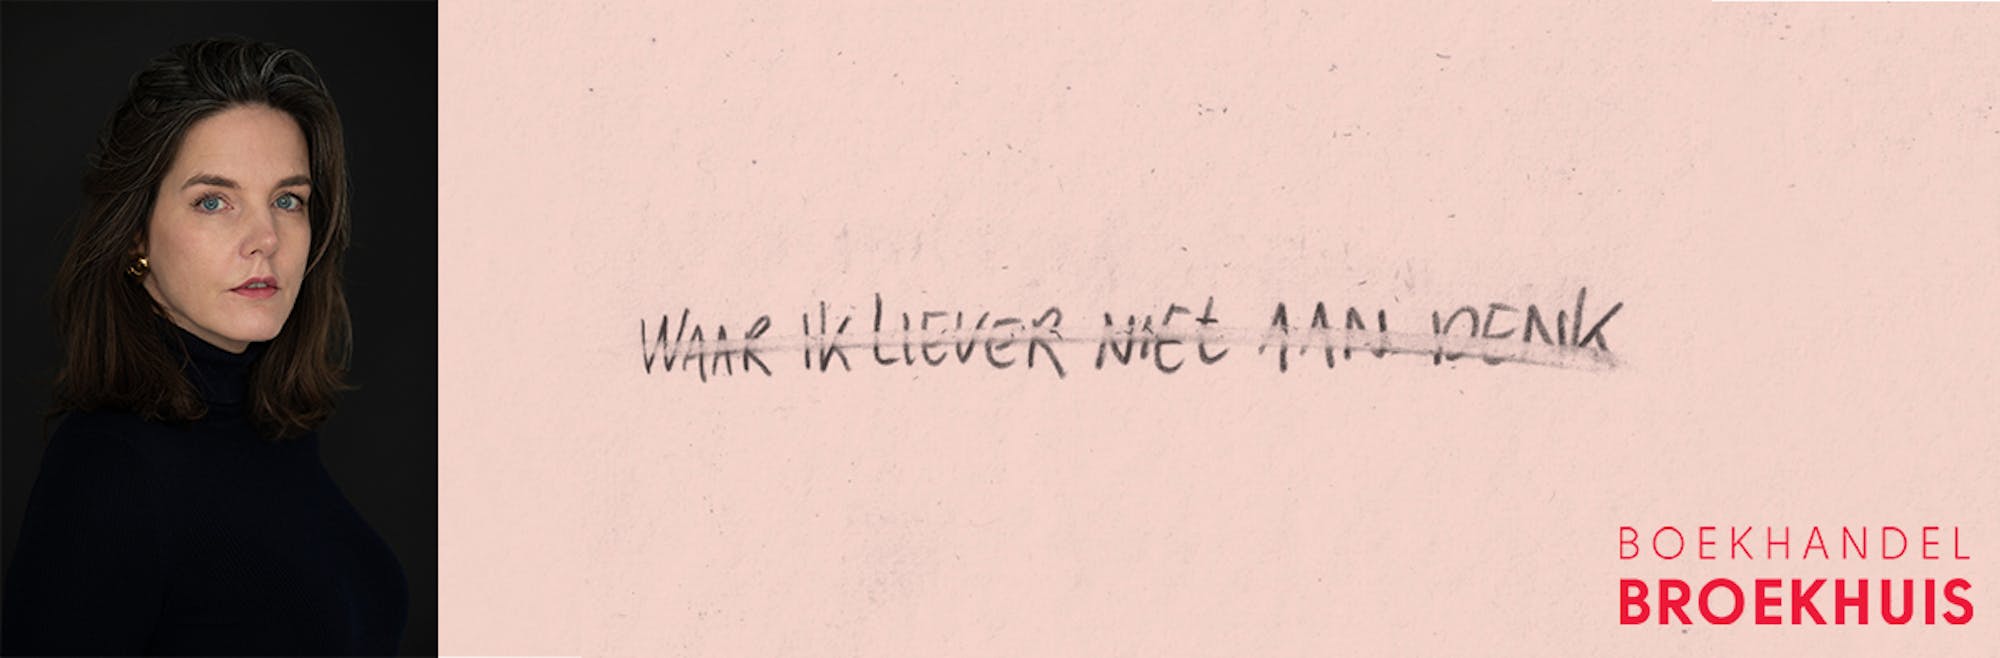 WAAR IK LIEVER NIET AAN DENK
BOEKHANDEL
BROEKHUIS